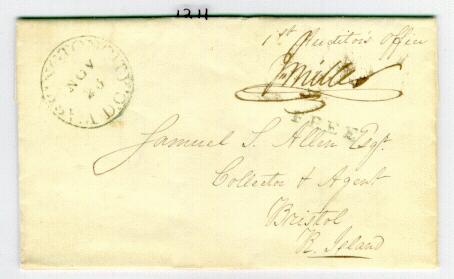 1211
1st Auditor's Office
J Miller
WASHINGTON CITY D.C.
NOV
25
FREE
Samuel S. Allen Esqr
Collector & Agent
Bristol
R. Island